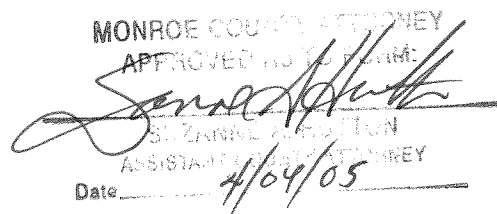 MONROE COUNTY ATTORNEY
APPROVED AS TO FORM:
SUZANNE A. HUTTON
ASSISTANT COUNTY ATTORNEY
Date 4/04/05